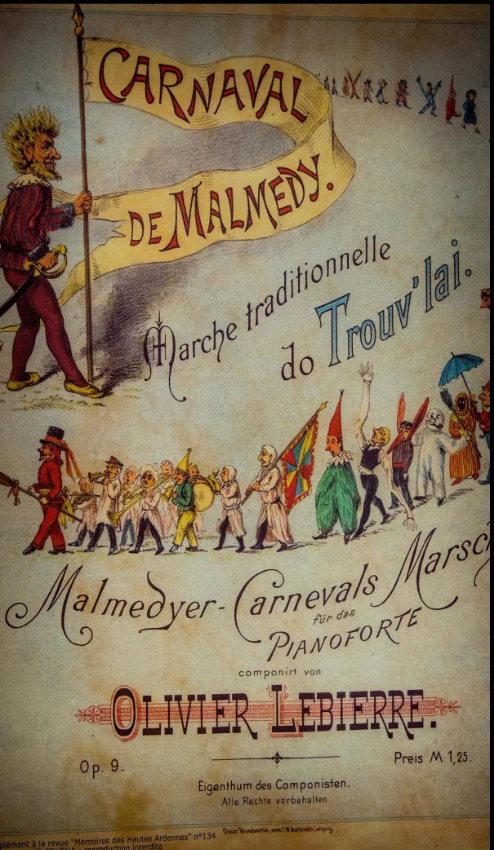 CARNAVAL
DE MALMEDY.
Marche traditionnelle
do Trouv'lai.
Malmedyer-Carnevals Marsch
für das
PIANOFORTE
componirt von
OLIVIER LEBIERRE.
Op. 9.
Preis M 1,25.
Eigenthum des Componisten.
Alle Rechte vorbehalten
plément à la revue "Mémoires des Hautes Ardennes" n°134
reproduction interdite